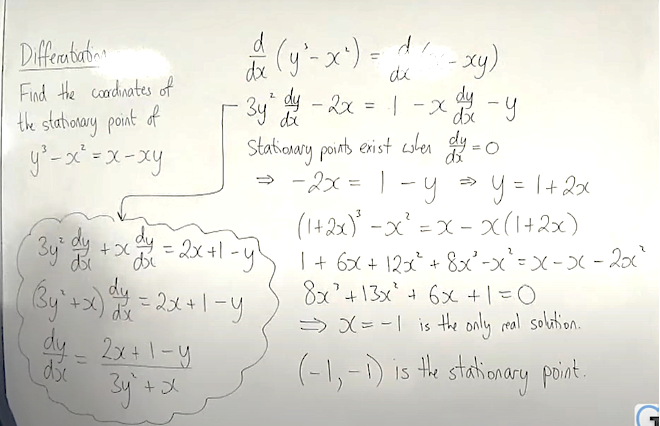 Differentiation
Find the coordinates of
the stationary point of
y³ - x² = x - xy
d/dx (y³ - x²) = d/dx ( - xy)
3y² dy/dx - 2x = 1 - x dy/dx - y
Stationary points exist when dy/dx = 0
⇒ -2x = 1 - y ⇒ y = 1 + 2x
(1+2x)³ - x² = x - x(1+2x)
1 + 6x + 12x² + 8x³ - x² = x - x - 2x²
8x³ + 13x² + 6x + 1 = 0
⇒ x = -1 is the only real solution.
(-1, -1) is the stationary point.
3y² dy/dx + x dy/dx = 2x + 1 - y
(3y² + x) dy/dx = 2x + 1 - y
dy/dx = (2x + 1 - y)/(3y² + x)